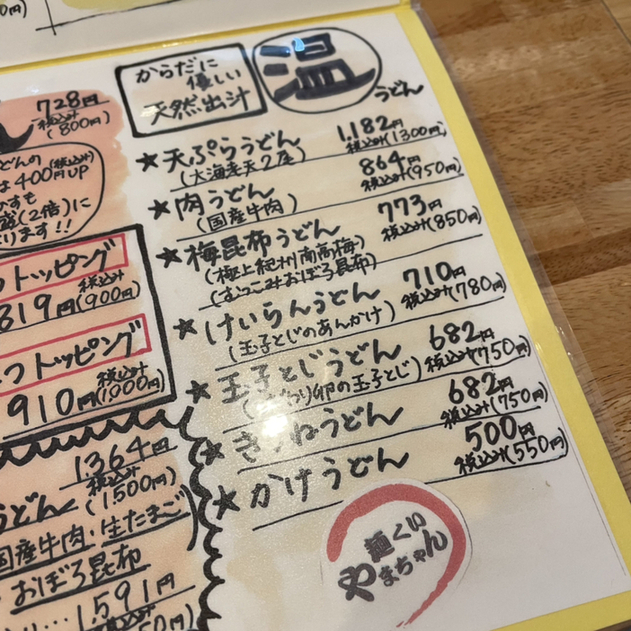 からだに
優しい
天然出汁
温
うどん
★天ぷらうどん 1,182円
(大海老天2尾) 税込み(1300円)
★肉うどん 864円
(国産牛肉) 税込み(950円)
★梅昆布うどん 773円
(極上紀州南高梅・ 税込み(850円)
むっこみおぼろ昆布)
★けいらんうどん 710円
(玉子とじのあんかけ) 税込み(780円)
★玉子とじうどん 682円
わり卵の玉子とじ) 税込み(750円)
★きつねうどん 682円
税込み(750円)
★かけうどん 500円
税込み(550円)
麺くい
やまちゃん
728円
税込み
(800円)
どんの
は400円(税込み)UP
かすも
盛(2倍)に
ります!!
トッピング
819円 税込み
(900円)
つトッピング
910円 税込み
(1000円)
1364円
税込み
(1,500円)
うどん
国産牛肉・生たまご
おぼろ昆布
1,591円
50円)